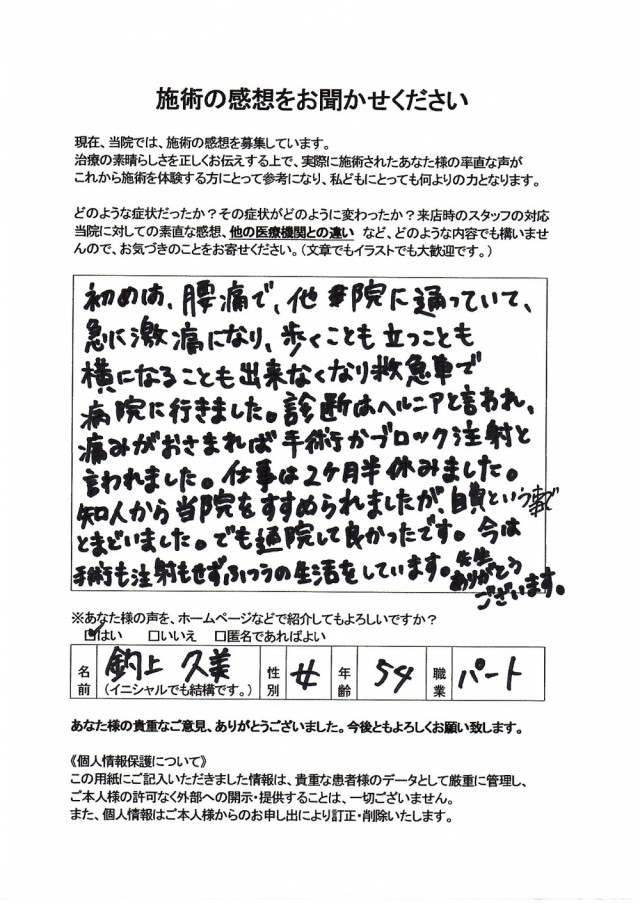 施術の感想をお聞かせください
現在、当院では、施術の感想を募集しています。
治療の素晴らしさを正しくお伝えする上で、実際に施術されたあなた様の率直な声が
これから施術を体験する方にとって参考になり、私どもにとっても何よりの力となります。
どのような症状だったか？その症状がどのように変わったか？来店時のスタッフの対応
当院に対しての素直な感想、他の医療機関との違い など、どのような内容でも構いませ
んので、お気づきのことをお寄せください。（文章でもイラストでも大歓迎です。）
初めは、腰痛で、他院に通っていて、
急に激痛になり、歩くことも立つことも
横になることも出来なくなり救急車で
病院に行きました。診断はヘルニアと言われ、
痛みがおさまれば手術かブロック注射と
言われました。仕事は2ヶ月半休みました。
知人から当院をすすめられましたが、自費という事で
とまどいました。でも通院して良かったです。今は
手術も注射もせずふつうの生活をしています。先生
ありがとう
ございます。
※あなた様の声を、ホームページなどで紹介してもよろしいですか？
☑はい □いいえ □匿名であればよい
名前 釣上 久美 （イニシャルでも結構です。） 性別 女 年齢 54 職業 パート
あなた様の貴重なご意見、ありがとうございました。今後ともよろしくお願い致します。
《個人情報保護について》
この用紙にご記入いただきました情報は、貴重な患者様のデータとして厳重に管理し、
ご本人様の許可なく外部への開示・提供することは、一切ございません。
また、個人情報はご本人様からのお申し出により訂正・削除いたします。